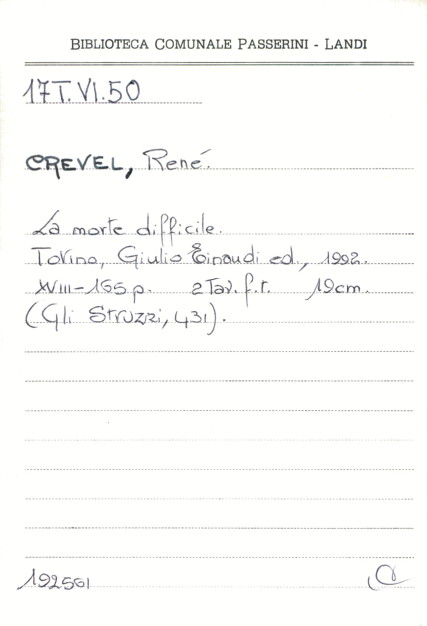 BIBLIOTECA COMUNALE PASSERINI - LANDI
17T.VI.50
CREVEL, René.
La morte difficile.
Torino, Giulio Einaudi ed., 1992.
XVIII-165 p. 2 Tav. f.t. 19cm.
(Gli Struzzi, 431).
192561